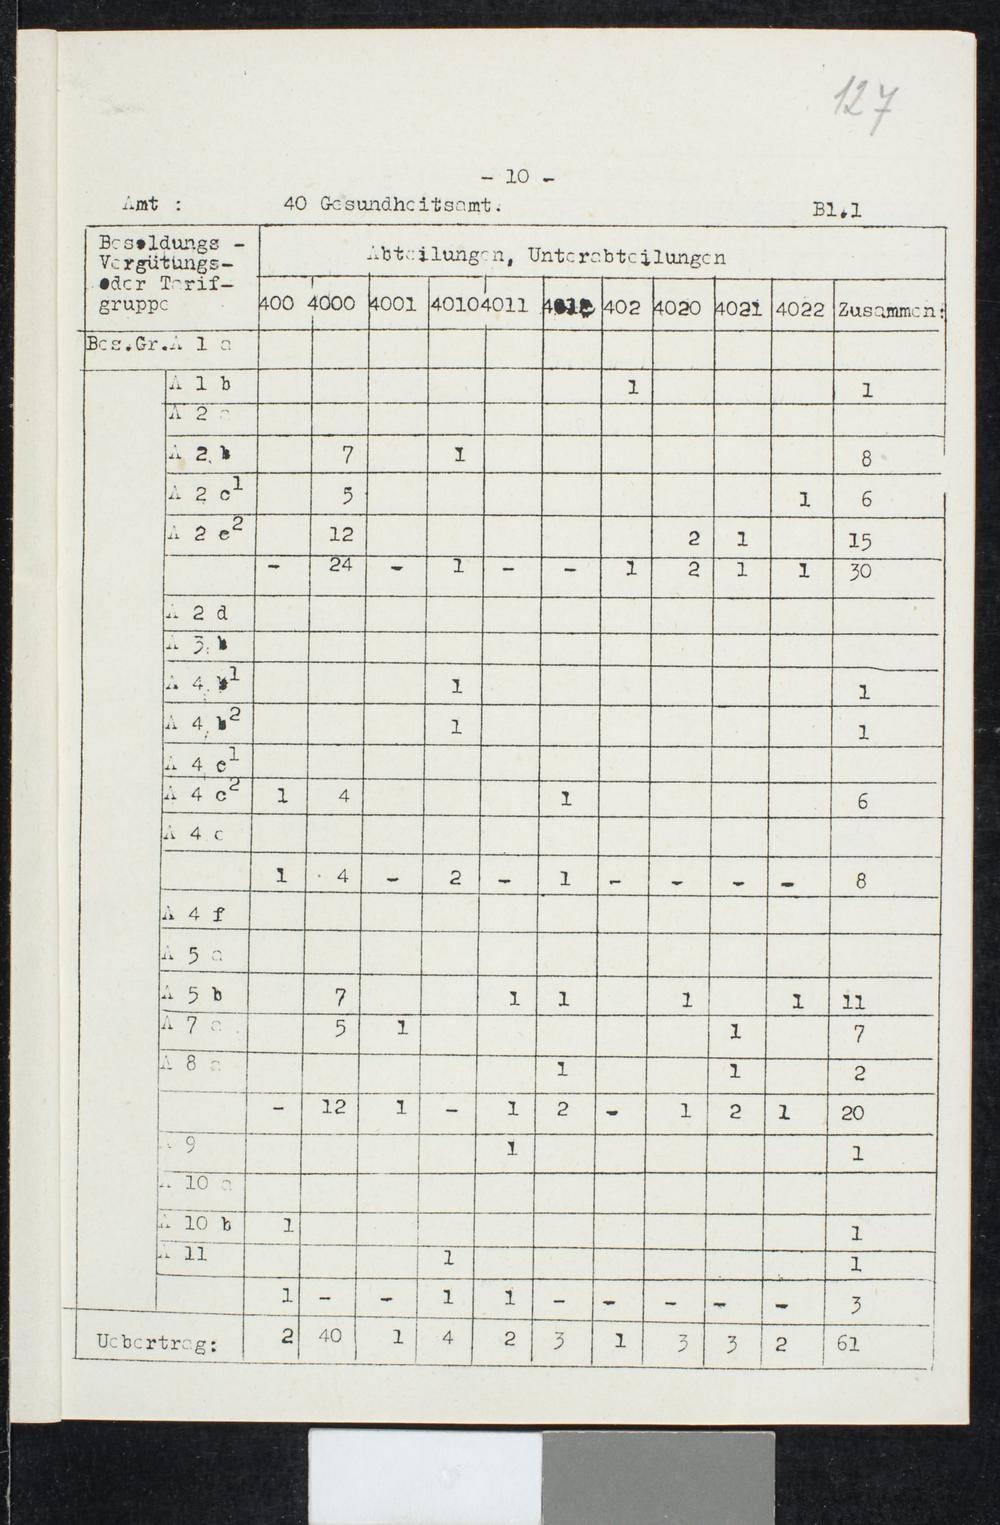 127
- 10 -
Amt : 40 Gesundheitsamt. Bl.1
Besoldungs -
Vergütungs-
oder Tarif-
gruppe
Abteilungen, Unterabteilungen
400 4000 4001 4010 4011 402 4020 4021 4022 Zusammen:
Bes.Gr.A 1 a
A 1 b 1 1
A 2 a
A 2 b 7 1 8
A 2 c1 5 1 6
A 2 c2 12 2 1 15
- 24 - 1 - - 1 2 1 1 30
A 2 d
A 3 b
A 4 b1 1 1
A 4 b2 1 1
A 4 c1
A 4 c2 1 4 1 6
A 4 c
1 4 - 2 - 1 - - - - 8
A 4 f
A 5 a
A 5 b 7 1 1 1 1 11
A 7 a 5 1 1 7
A 8 a 1 1 2
- 12 1 - 1 2 - 1 2 1 20
A 9 1 1
A 10 a
A 10 b 1 1
A 11 1 1
1 - - 1 1 - - - - - 3
Uebertrag: 2 40 1 4 2 3 1 3 3 2 61